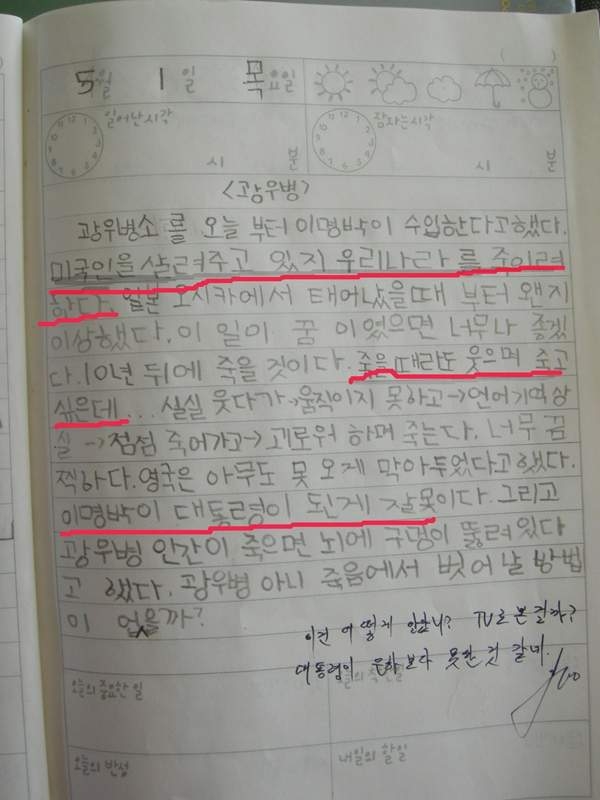 5월 1일 목요일
일어난시각
잠자는시각
시 분
시 분
<광우병>
광우병소 를 오늘 부터 이명박이 수입한다고했다.
미국인을 살려주고 있지 우리나라 를 주이려
하다. 일본 오시카에서 태어났을때 부터 왠지
이상했다. 이 일이 꿈 이었으면 너무나 좋겠
다. 10년 뒤에 죽을 것이다. 죽은 때라도 웃으며 죽고
싶은데... 실실 웃다가→움직이지 못하고→언어기억상
실→점섬 죽어가고→괴로워 하며 죽는다. 너무 끔
찍하다. 영국은 아무도 못 오게 막아두었다고했다.
이명박이 대통령이 된게 잘못이다. 그리고
광우병 안간이 죽으면 뇌에 구멍이 뚫려있다
고 했다. 광우병 아니 죽음에서 벗어날 방법
이 없을까?
이런 어떻게 안했니? TV로 본 걸까?
대통령이 보다 못한 것 같네.
오늘의 중요한 일
오늘의 착한일
오늘의 반성
내일의 할일